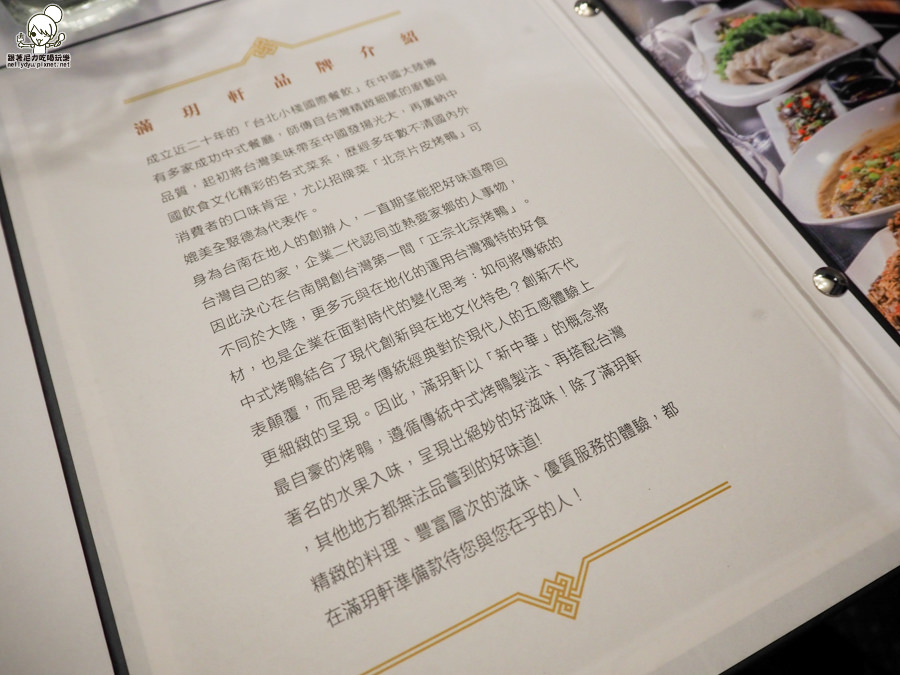 跟著尼力吃喝玩樂
nellydyu.pixnet.net
滿玥軒品牌介紹
成立近二十年的「台北小棧國際餐飲」在中國大陸擁
有多家成功中式餐廳，師傳自台灣精緻細膩的廚藝與
品質，起初將台灣美味帶至中國發揚光大，再廣納中
國飲食文化精彩的各式菜系，歷經多年數不清國內外
消費者的口味肯定，尤以招牌菜「北京片皮烤鴨」可
媲美全聚德為代表作。
身為台南在地人的創辦人，一直期望能把好味道帶回
台灣自己的家，企業二代認同並熱愛家鄉的人事物，
因此決心在台南開創台灣第一間「正宗北京烤鴨」。
不同於大陸，更多元與在地化的運用台灣獨特的好食
材，也是企業在面對時代的變化思考：如何將傳統的
中式烤鴨結合了現代創新與在地文化特色？創新不代
表顛覆，而是思考傳統經典對於現代人的五感體驗上
更細緻的呈現。因此，滿玥軒以「新中華」的概念將
最自豪的烤鴨，遵循傳統中式烤鴨製法、再搭配台灣
著名的水果入味，呈現出絕妙的好滋味！除了滿玥軒
，其他地方都無法品嘗到的好味道!
精緻的料理、豐富層次的滋味、優質服務的體驗，都
在滿玥軒準備款待您與您在乎的人！